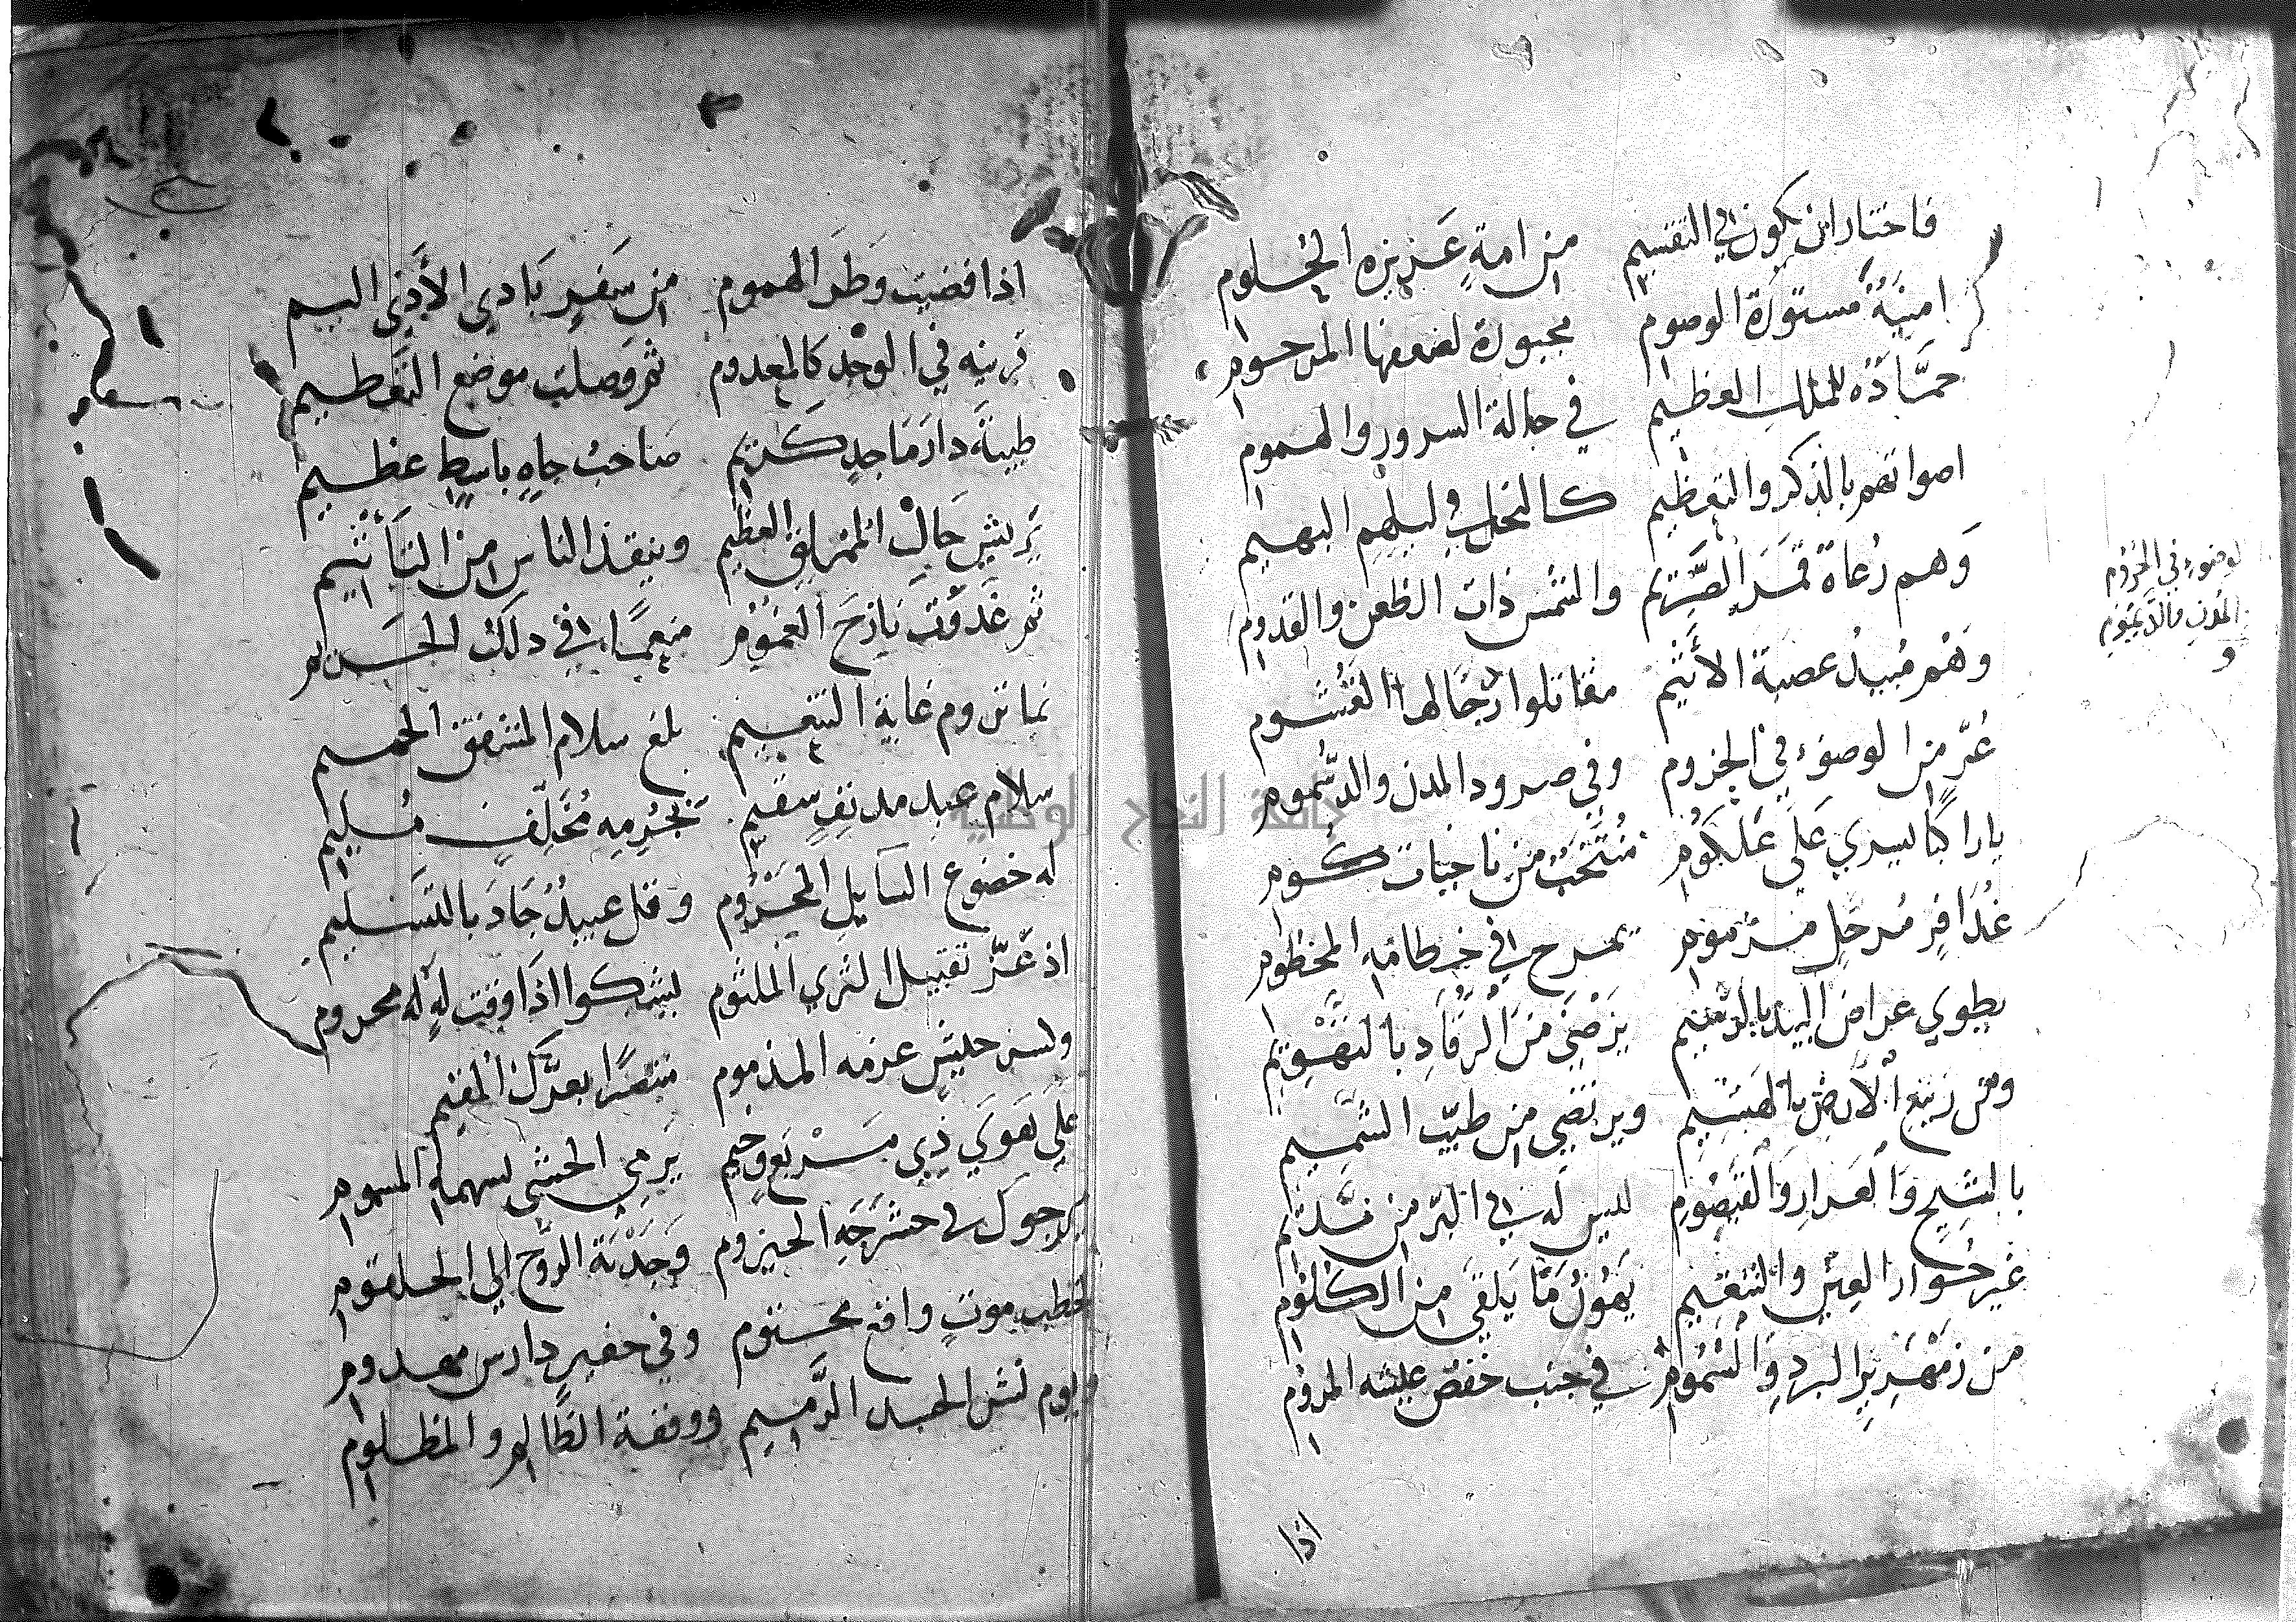 فاختار ان يكون في التقسيم من امةٍ عَزيزه الحُلوم
امينَةٌ مستورَة الوصوم مجبورة لضعفها المرحوم
حمَّادَةُ للملك العظيم في حالة السرور والهموم
اصواتهم بالذكر والتعظيم كالنحل في ليلهم البهيم
وَهم رُعاة قمَر الصَّريم والشمس ذات الظعن والقدوم
وَهُم مُبيدُ عصبَة الأَثيم مقاتلوا دجّالها الغَشُوم
غُرّ من الوضوء في الجزوم وفي صرود المدن والدّسُموم
يا راكبًا يسري عَلى عَلكُوم مُنتَخَب من ناجيات كُوم
عُذَافِر مُرحَلٍ مزموم يمرح في خطامه المخطوم
يطوي عراض البيد بالرسيم يَرْضَى مَنَ الرُّقَادِ بالتَّهْوِيم
ومن رَبيع الأَرضِ بالهَشِيم ويرتضى من طيّب الشميم
بالشيح وَالعَرارِ وَالقَيصُومِ ليس له في البَرّ من نَديم
غير حُوار العِيْنِ وَالنَّعيم يَهُونُ مَا يَلقَى من الكُلُوم
من زمَهَرِيرِ البردِ وَالسَّمُوم في جنب خَفض عيشه المروم
اذا
لوضوءِ في الحُزُوم
المُدن والدَّيمُومِ
اذا قضيت وَطَر الهموم من سَفرٍ بَادي الأَذى اليم
قرينه في الوَجْدِ كالمعدوم ثم وَصلت موضع التَّعظيم
طيبَة دارَ مَاجدٍ كريم صَاحبُ جاهٍ باسطٍ عظيم
يَريشُ حَالَ المملق العظيم وينقذ الناس من التَأثيم
ثم غَدَوْتَ نَازحَ الغُمُوم منعمًا في ذلك الحَريم
بما تروم غاية التنعيم بلغ سلام المشفق الحميم
سلام عبدٍ مدنِفٍ سقيم بجُرمِه مُخَلّفٍ مُليم
له خضوع السَايِل المَحْرُوم وقل عبيدٌ جَادَ بالتَّسليم
اذ عَزَّ تقبيل الثري الملثوم يشكوا اذا وقت له له محروم
وليس جيش عزمه المذموم منتصرًا بعدَّكَ المقيم
عَلى هَوَي ذِي مَرْتَع وخيم يَرمي الحشى بسهمه المسموم
يرجوك في حشرَجَهِ الحيزوم وَجَذْبَة الرُّوح الي الحلقوم
لخطب موتٍ واقع محتوم وفي حفيرٍ دارس مهدوم
ويوم نشر الجسد الرَّميم ووقفة الظَّالم والمظلوم